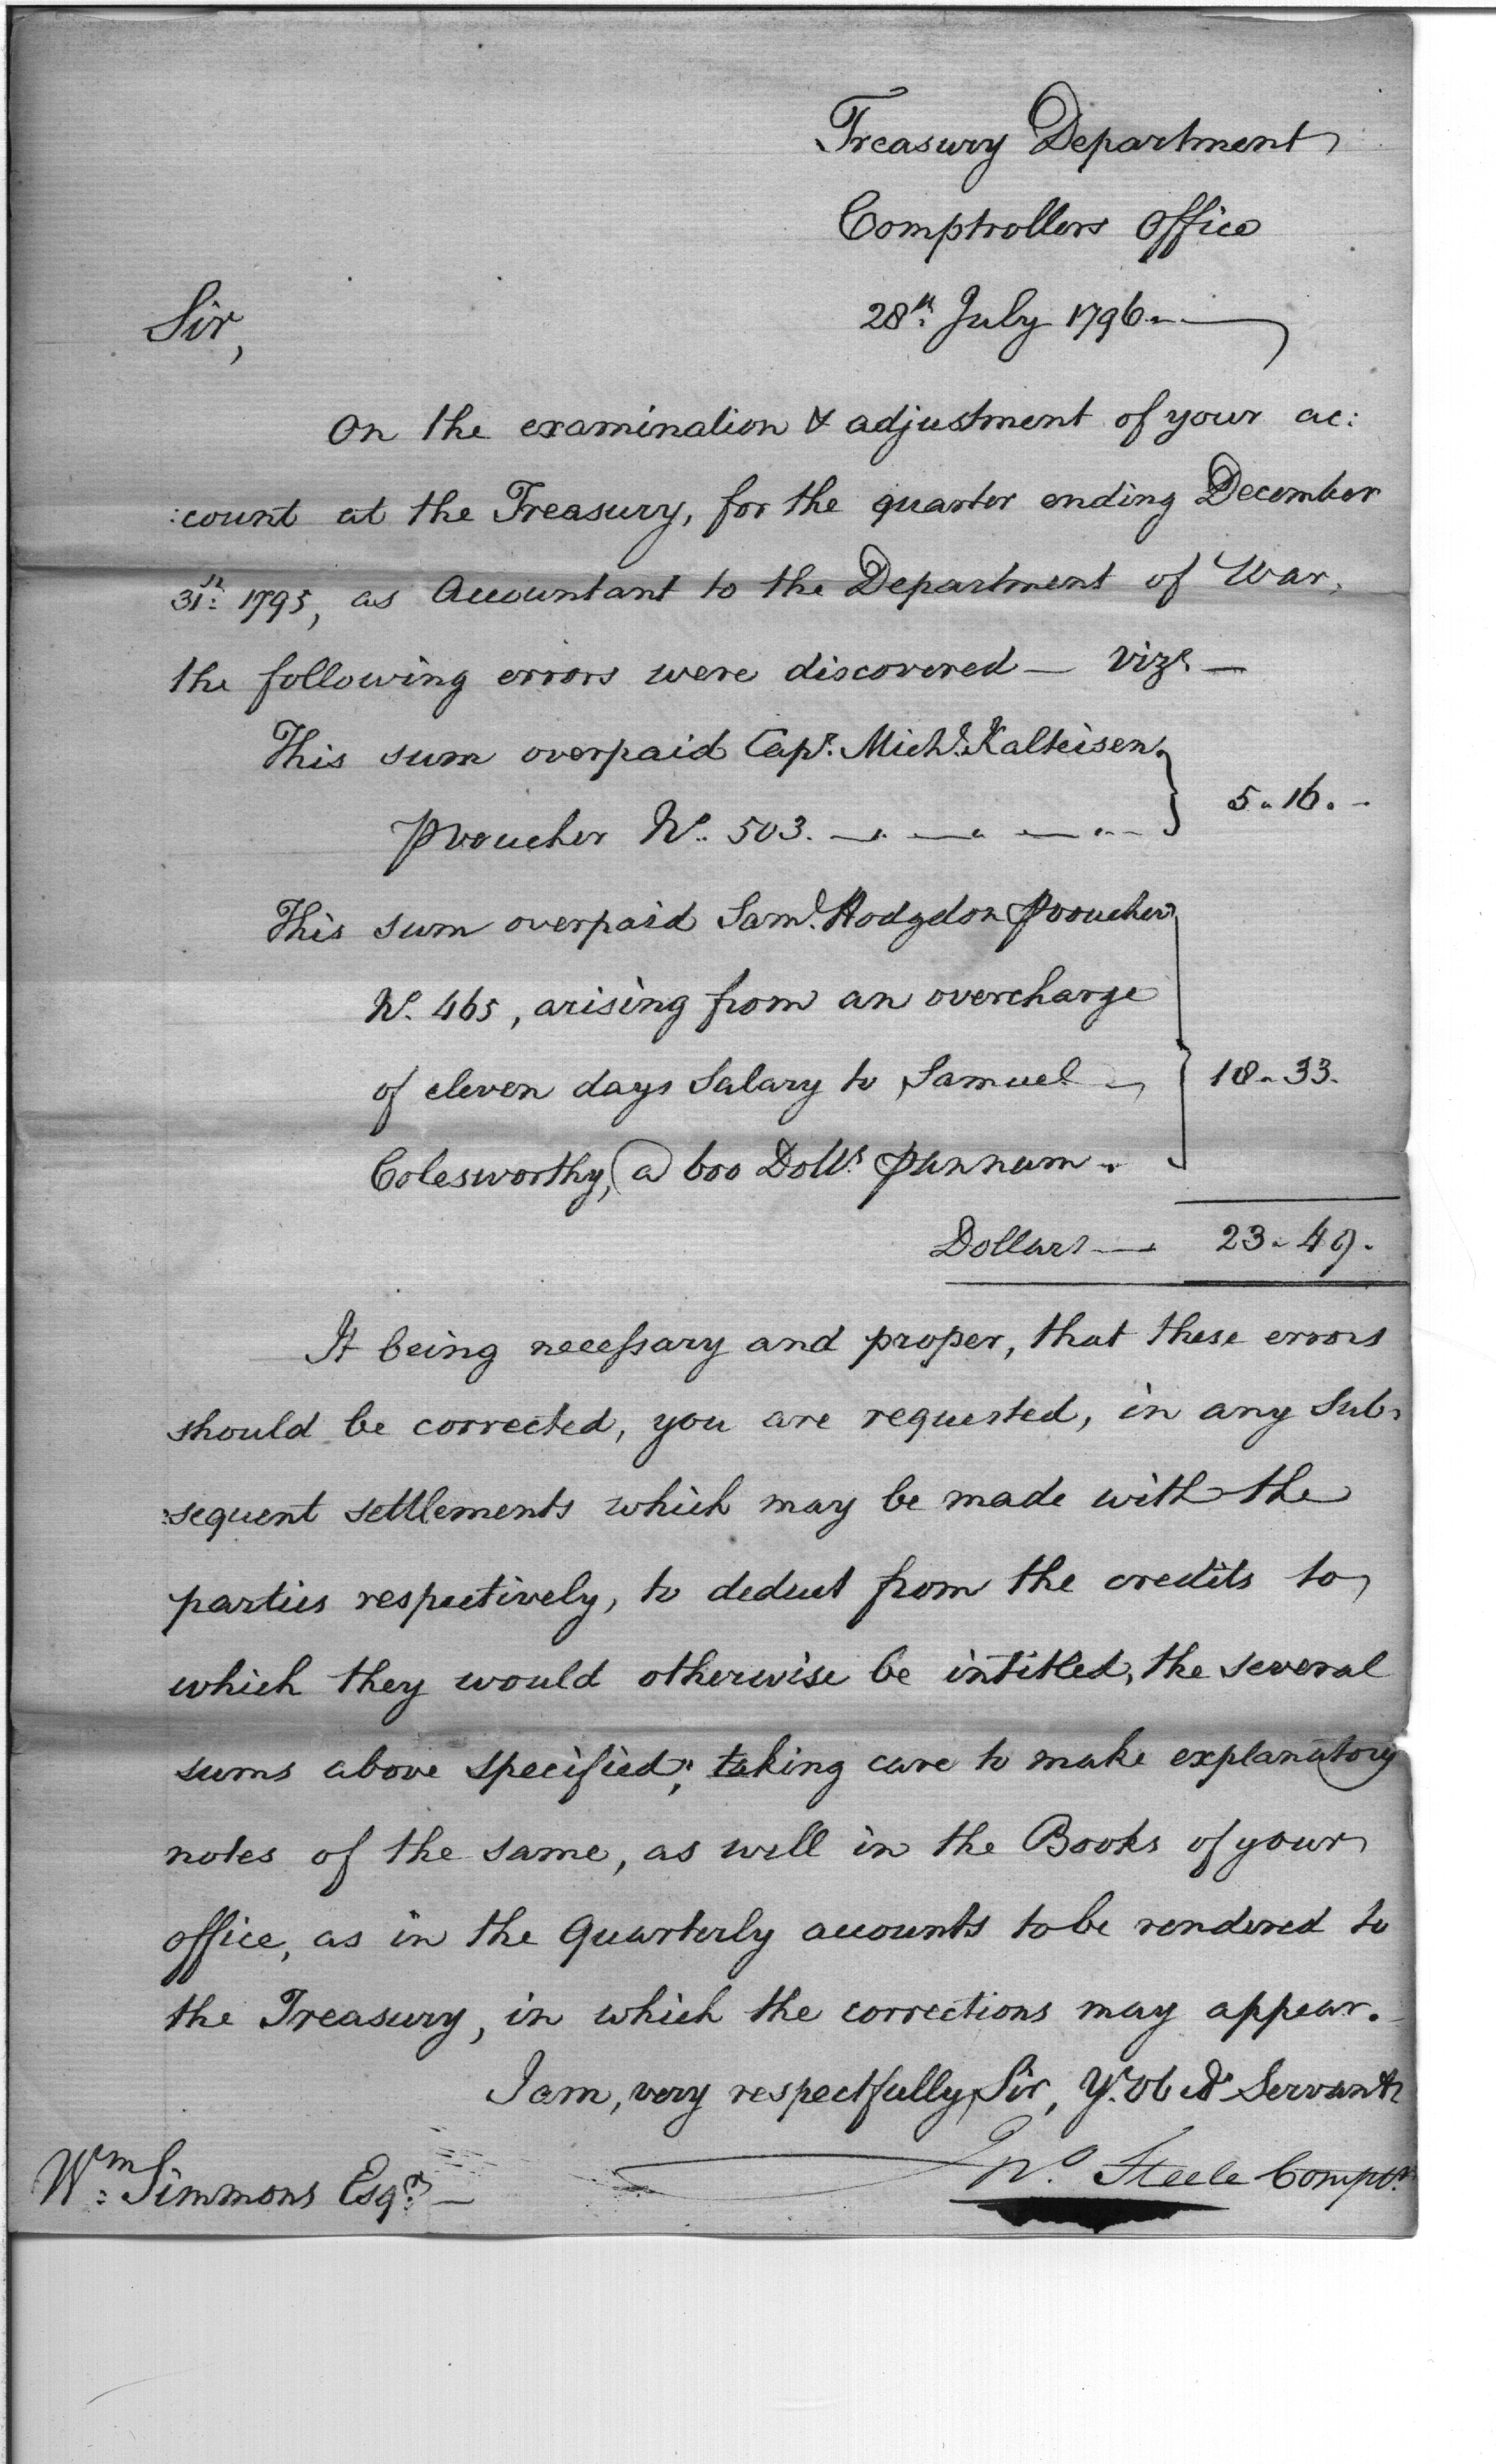 Treasury Department
Comptrollers Office
28th. July 1796.
Sir,
On the examination & adjustment of your ac:
:count at the Treasury, for the quarter ending December
31st. 1795, as Accountant to the Department of War,
the following errors were discovered — Vizt. —
This sum overpaid Capt. Michl. Kalteisen,
⅌ voucher No. 503. 5.16.
This sum overpaid Saml. Hodgdon ⅌ voucher
No. 465, arising from an overcharge
of eleven days Salary to Samuel 18.33.
Colesworthy, @ 600 Dolls. ⅌ annum.
Dollars — 23.49.
It being necessary and proper, that these errors
should be corrected, you are requested, in any Sub:
:sequent settlements which may be made with the
parties respectively, to deduct from the credits to
which they would otherwise be intitled, the several
sums above specified; taking care to make explanatory
notes of the same, as well in the Books of your
office, as in the Quarterly accounts to be rendered to
the Treasury, in which the corrections may appear.
I am, very respectfully Sir, Yr. Obedt. Servant
Jno. Steele Comptr.
Wm. Simmons Esqr. —